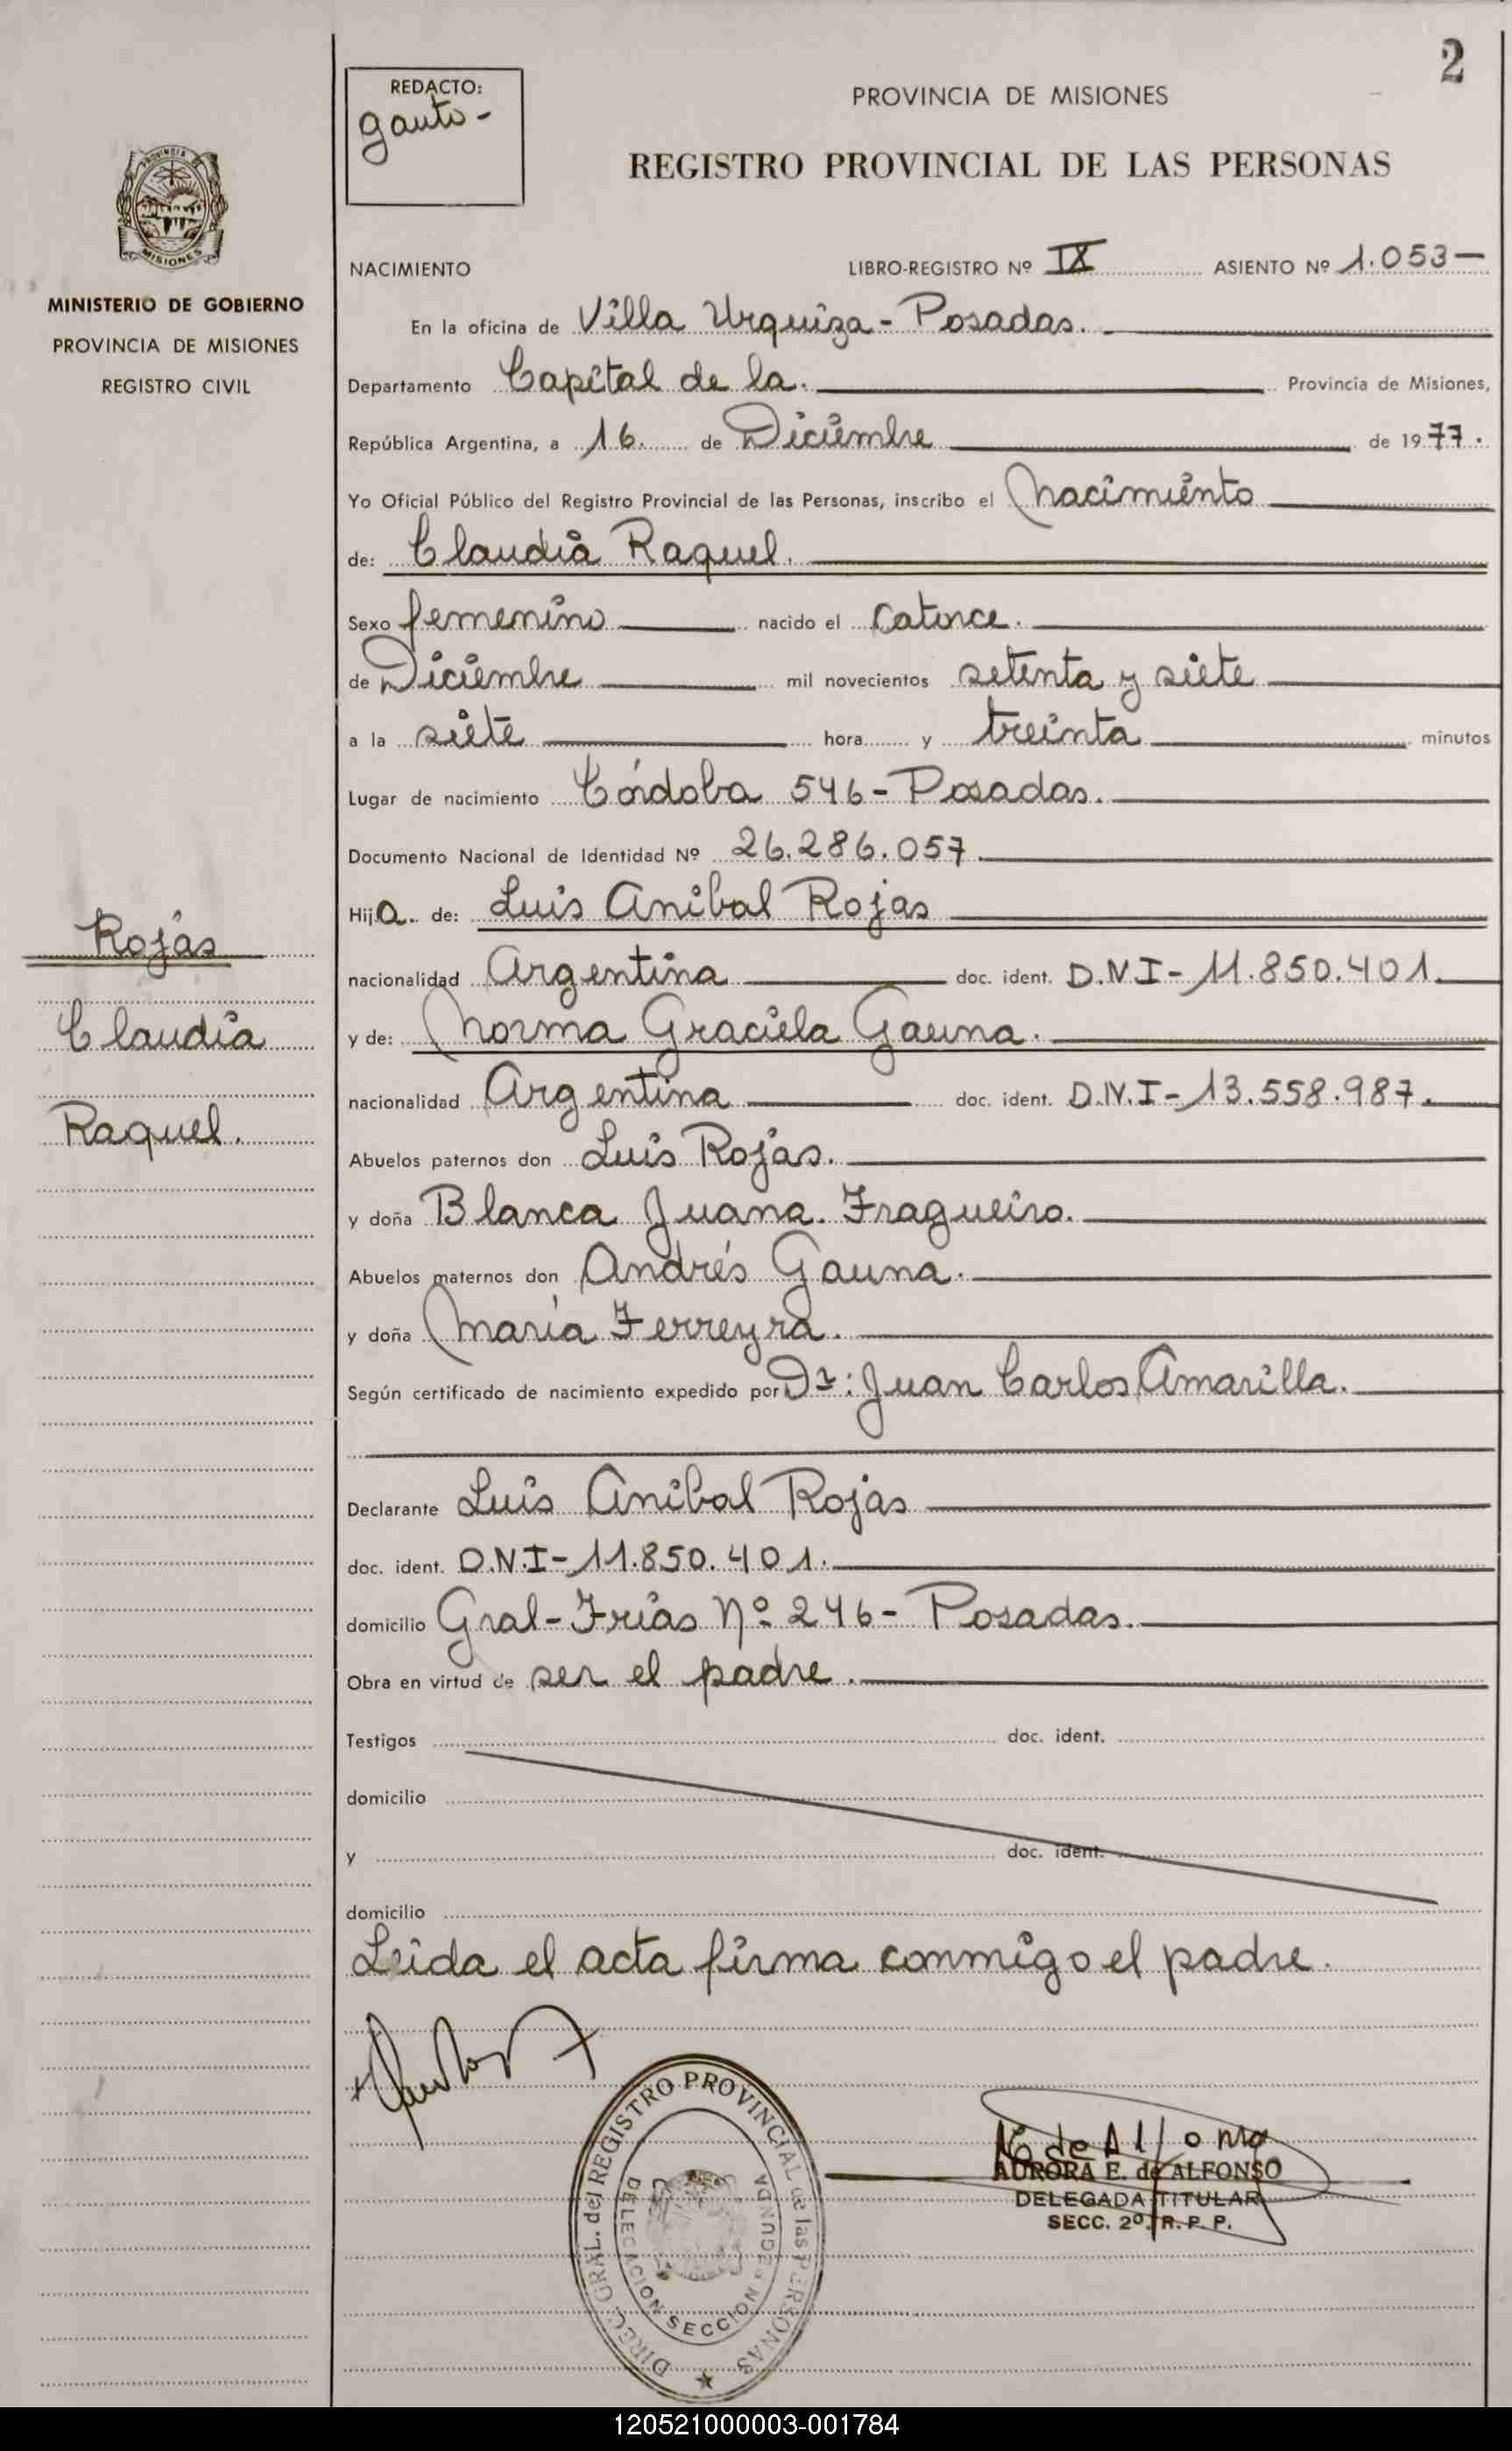 2
REDACTO:
gauto-
PROVINCIA DE MISIONES
REGISTRO PROVINCIAL DE LAS PERSONAS
PROVINCIA DE
MISIONES
MINISTERIO DE GOBIERNO
PROVINCIA DE MISIONES
REGISTRO CIVIL
NACIMIENTO LIBRO-REGISTRO Nº IX ASIENTO Nº 1.053-
En la oficina de Villa Urquiza - Posadas.
Departamento Capital de la. Provincia de Misiones,
República Argentina, a 16. de Diciembre de 1977.
Yo Oficial Público del Registro Provincial de las Personas, inscribo el Nacimiento
de: Claudia Raquel.
Sexo femenino nacido el catorce.
de Diciembre mil novecientos setenta y siete
a la siete hora y treinta minutos
Lugar de nacimiento Córdoba 546 - Posadas.
Documento Nacional de Identidad Nº 26.286.057.
Hija de: Luis Anibal Rojas
nacionalidad Argentina doc. ident. D.N.I - 11.850.401.
y de: Norma Graciela Gauna.
nacionalidad Argentina doc. ident. D.N.I - 13.558.987.
Abuelos paternos don Luis Rojas.
y doña Blanca Juana. Fragueiro.
Abuelos maternos don Andrés Gauna.
y doña María Ferreyra.
Según certificado de nacimiento expedido por Dr: Juan Carlos Amarilla.
Declarante Luis Anibal Rojas
doc. ident. D.N.I - 11.850.401.
domicilio Gral - Frias Nº 246 - Posadas.
Obra en virtud de ser el padre.
Testigos doc. ident.
domicilio
y doc. ident.
domicilio
Leida el acta firma conmigo el padre.
Rojas
Claudia
Raquel.
DIREC. GRAL. del REGISTRO PROVINCIAL de las PERSONAS
DELEGACION SECCION SEGUNDA
de Alfonso
AURORA E. de ALFONSO
DELEGADA TITULAR
SECC. 2º. R. P. P.
120521000003-001784